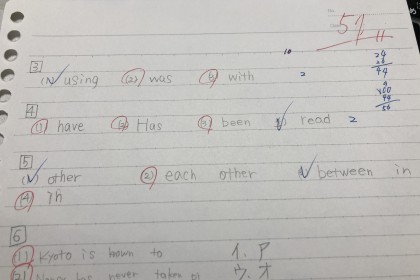 No.
51
10
3
(1) using (2) was (3) with 2
24
44
100
44
56
4
(1) have (2) Has (3) been (4) read 2
5
(1) other (2) each other (3) between in
(4) in
6
(1) Kyoto is known to イ. ア
(2) never taken ウ. オ